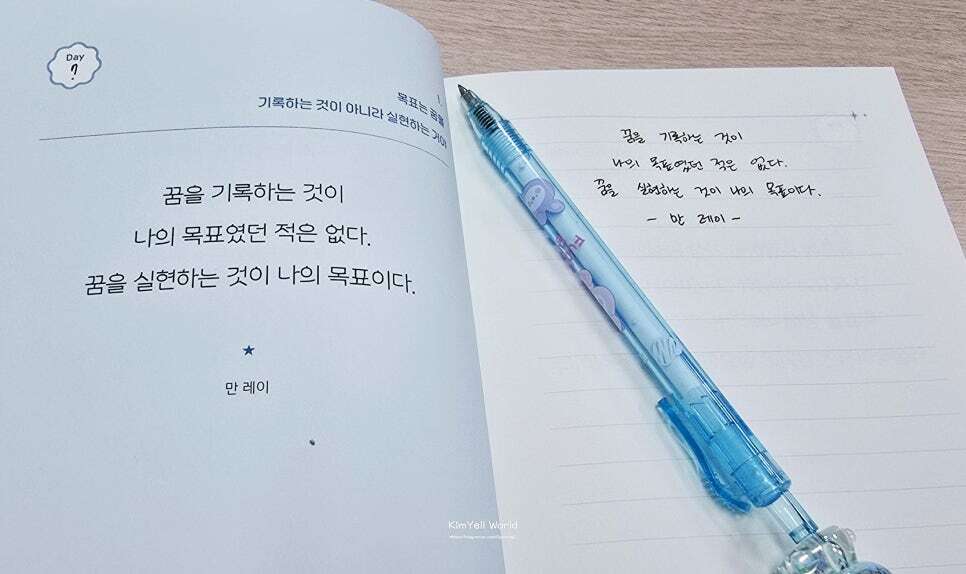 Day
7
1.
목표는 꿈을
기록하는 것이 아니라 실현하는 것이
꿈을 기록하는 것이
나의 목표였던 적은 없다.
꿈을 실현하는 것이 나의 목표이다.
만 레이
꿈을 기록하는 것이
나의 목표였던 적은 없다.
꿈을 실현하는 것이 나의 목표이다.
- 만 레이 -
KimYell World